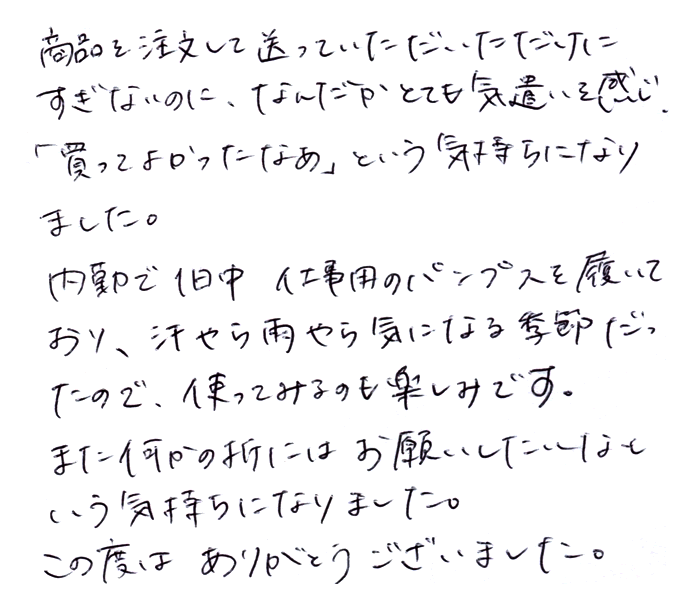 商品を注文して送っていただいただけに
すぎないのに、なんだかとても気遣いを感じ、
「買ってよかったなあ」という気持ちになり
ました。
内勤で1日中 仕事用のパンプスを履いて
おり、汗やら雨やら気になる季節だっ
たので、使ってみるのも楽しみです。
また何かの折にはお願いしたいなと
いう気持ちになりました。
この度は ありがとうございました。